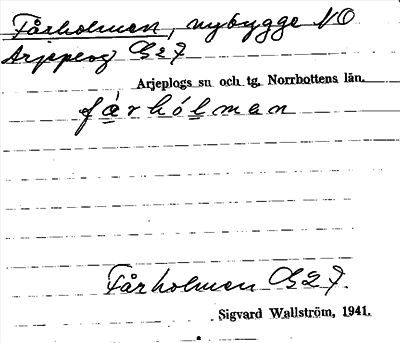 Fårholmen, nybygge NO
Arjeplog G 27
Arjeplogs sn och tg. Norrbottens län.
få̀rhólman
Fårholmen G 27.
Sigvard Wallström, 1941.